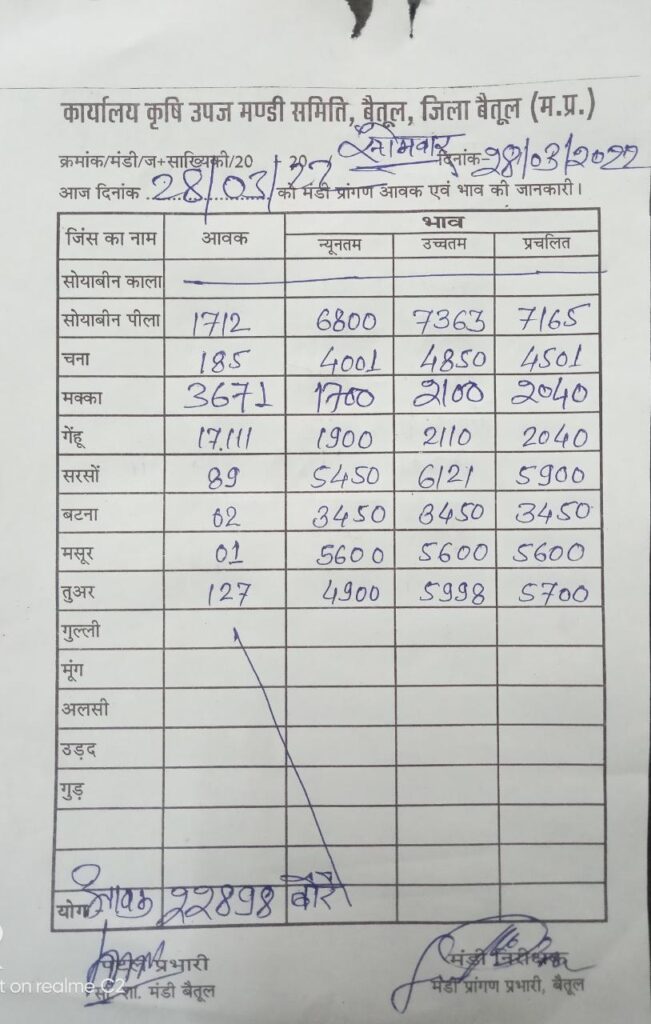 कार्यालय कृषि उपज मण्डी समिति, बैतूल, जिला बैतूल (म.प्र.)
सोमवार
क्रमांक/मंडी/ज+सांख्यिकी/20 + 20 दिनांक-28/03/2022
आज दिनांक 28/03/22 को मंडी प्रांगण आवक एवं भाव की जानकारी।
जिंस का नाम आवक भाव
न्यूनतम उच्चतम प्रचलित
सोयाबीन काला
सोयाबीन पीला 1712 6800 7363 7165
चना 185 4001 4850 4501
मक्का 3671 1700 2100 2040
गेंहू 17111 1900 2110 2040
सरसों 89 5450 6121 5900
बटना 02 3450 3450 3450
मसूर 01 5600 5600 5600
तुअर 127 4900 5998 5700
गुल्ली
मूंग
अलसी
उड़द
गुड़
योग आवक 22898 बोरे
प्रभारी मंडी निरीक्षक
सां. शा. मंडी बैतूल मंडी प्रांगण प्रभारी, बैतूल
t on realme C2